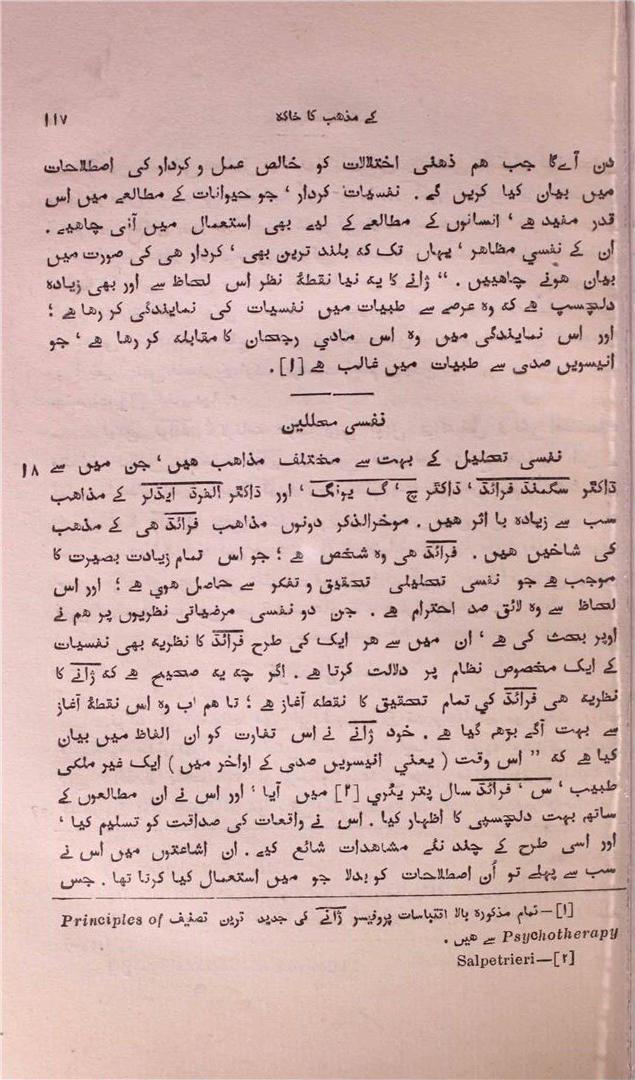 کے مذهب کا خاکہ ۱۱۷
دن آے گا جب هم ذهنی اختلالات کو خالص عمل و کردار کی اصطلاحات
میں بیان کیا کریں گے . نفسیات کردار ' جو حیوانات کے مطالعے میں اس
قدر مفید هے ' انسانوں کے مطالعے کے لیے بھی استعمال میں آنی چاهیے .
ان کے نفسی مظاهر ' یہاں تک کہ بلند ترین بھی ' کردار هی کی صورت میں
بیان هونے چاهییں . " ژانے کا یہ نیا نقطۂ نظر اس لحاظ سے اور بھی زیادہ
دلچسپ هے کہ وہ عرصے سے طبیات میں نفسیات کی نمایندگی کر رها هے ؛
اور اس نمایندگی میں وہ اس مادی رجحان کا مقابلہ کر رها هے ' جو
انیسویں صدی سے طبیات میں غالب هے [۱] .
نفسی محللین
۱۸ نفسی تحلیل کے بہت سے مختلف مذاهب هیں ' جن میں سے
ڈاکٹر سگمنڈ فرائڈ ' ڈاکٹر چ ' گ یونگ ' اور ڈاکٹر الفرڈ ایڈلر کے مذاهب
سب سے زیادہ با اثر هیں . موخرالذکر دونوں مذاهب فرائڈ هی کے مذهب
کی شاخیں هیں . فرائڈ هی وہ شخص هے ؛ جو اس تمام زیادت بصیرت کا
موجب هے جو نفسی تحلیلی تحقیق و تفکر سے حاصل هوی هے ؛ اور اس
لحاظ سے وہ لائق صد احترام هے . جن دو نفسی مرضیاتی نظریوں پر هم نے
اوپر بحث کی هے ' ان میں سے هر ایک کی طرح فرائڈ کا نظریہ بھی نفسیات
کے ایک مخصوص نظام پر دلالت کرتا هے . اگر چہ یہ صحیح هے کہ ژانے کا
نظریہ هی فرائڈ کی تمام تحقیق کا نقطہ آغاز هے ؛ تا هم اب وہ اس نقطۂ آغاز
سے بہت آگے بڑھ گیا هے . خود ژانے نے اس تفارت کو ان الفاظ میں بیان
کیا هے کہ " اس وقت ( یعنی انیسویں صدی کے اواخر میں ) ایک غیر ملکی
طبیب ' س ' فرائڈ سال پٹریٹری [۲] میں آیا ' اور اس نے ان مطالعوں کے
ساتھ بہت دلچسپی کا اظہار کیا . اس نے واقعات کی صداقت کو تسلیم کیا '
اور اسی طرح کے چند نئے مشاهدات شائع کیے . ان اشاعتوں میں اس نے
سب سے پہلے تو اُن اصطلاحات کو بدلا جو میں استعمال کیا کرتا تھا . جس
[۱]—تمام مذکورہ بالا اقتباسات پروفیسر ژانے کی جدید ترین تصنیف Principles of
Psychotherapy سے هیں .
Salpetrieri—[۲]